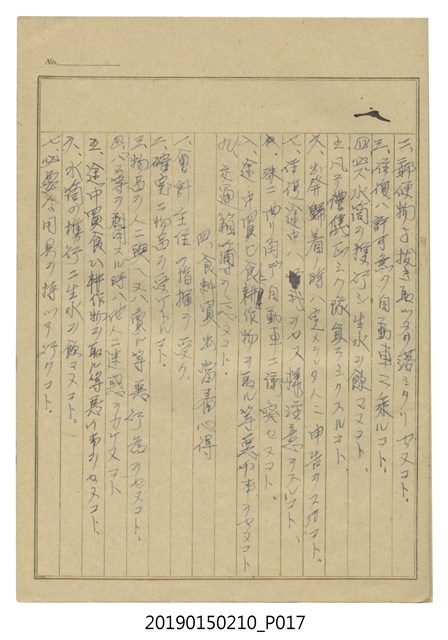 No.
二、郵便物ヲ抜キ取ッタリ落ミタリセヌコト、
三、往復ハ許可無ク自動車ニ乗ルコト、
四、必ズ水筒ヲ携行シ生水ヲ飲マヌコト、
五、凡テ禮儀正シク隊員ラシクスルコト、
六、出発歸着ノ時ハ定メラレタ人ニ申告ヲスルコト、
七、往復ノ途中ハ
注意ヲスルコト、
八、殊ニ曲リ角デ自動車ニ衝突セヌコト、
八、途中買ヒ食耕作物ヲ取ル等悪イ事ヲセヌコト
九、交通
四、食料買出當番心得
一、會計主任ノ指揮ヲ受ク、
二、確実ニ物品ヲ受ケトルコト、
三、物品ヲ人ニ
又ハ賣ル等悪イ行為ヲセヌコト、
四、
時ハ他人ニ迷惑ヲカケヌコト
五、途中買食ヒ耕作物ヲ取ル等悪イ事ヲセヌコト、
六、水筒ヲ携行シ生水ヲ飲マヌコト、
七、必要ナ用具ヲ持ッテ行クコト、
20190150210_P017